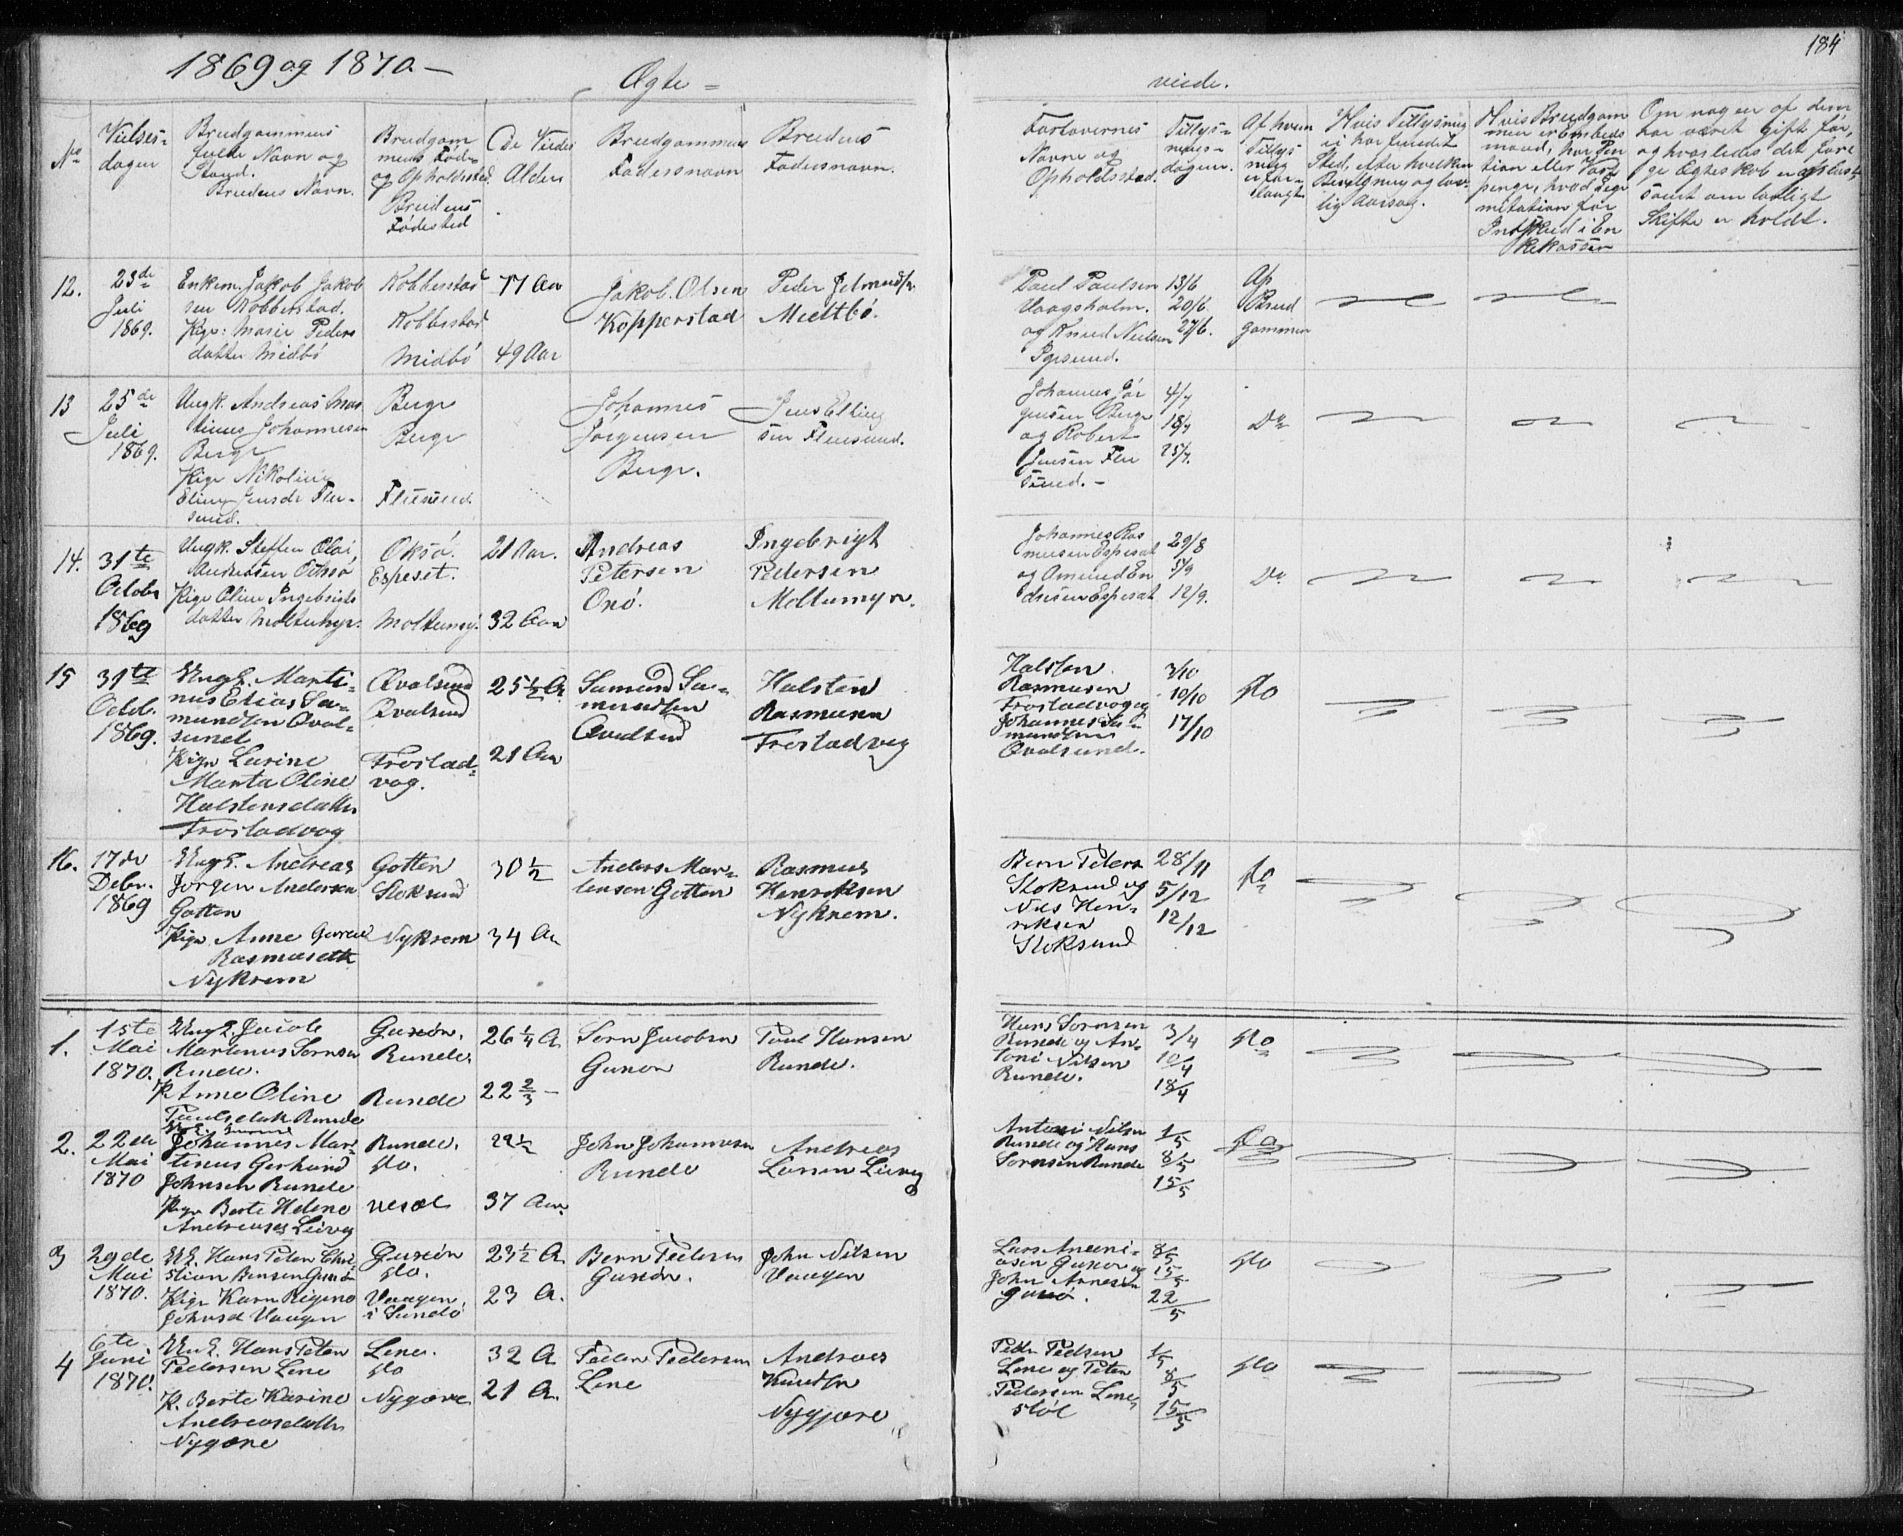 1869 og 1870 –
184
Ægte =
viede.
No
Vielses-
dagen
Brudgommens
fulde Navn og
Stand.
Brudens Navn.
Brudgom
mens Føde-
og Opholdssted.
Brudens
Fødested
De Viedes
Alder
Brudgommens
Fadersnavn
Brudens
Fadersnavn.
Forlovernes
Navne og
Opholdssted.
Tillys-
nings-
dagen.
Af hvem
Tillys
ning
er for-
langt
Hvis Tillysning
ei har fundet
Sted, efter hvilken
Bevilgning og lov-
lig Aarsag.
Hvis Brudgom
men er Embeds
mand, har Pen
tion eller Vart
penge, hvad Legi
mitation for
Indskud i En
kekassen
Om nogen af dem
har været gift før,
og hvorledes det fore
ge Ægteskab er opløst,
samt om lovligt
Skifte er holdt.
12.
23de
Juli
1869.
Enkem. Jakob Jakob
sen Kobberstad.
Pige: Marie Peders
datter Midbø
Kobberstad
Kobberstad
Midbø
77 Aar
49 Aar
Jakob Olsen
Kopperstad
Peder
Midtbø.
Paul Paulsen
Vaagsholm.
og Knud Nielsen
13/6
20/6
27/6.
Af
Brud
gommen
13
25de
Juli
1869.
Ungk. Andreas Mar
tinus Johannesen
Berge
Pige Nikoline
Eline Jensdr Flu-
sund.
Berge
Berge
Flusund
Johannes
Jørgensen
Berge.
Jens Elling
sen Flusund.
Johannes Jør
gensen Berge
og Robert
Jensen Flu
sund. –
4/7
18/7
25/7.
Do
14.
31te
Octobr
1869
Ungk. Steffen Olai,
Andreassen Oksø
Pige Oline Ingebrigts
datter Moltumyr.
Oksø.
Espeset.
Moltumyr.
21 Aar.
32 Aar
Andreas
Petersen
Onø.
Ingebrigt
Pedersen
Moltumyr.
Johannes Ras
musen Espeset
og Amund En
dresen Espeset
29/8
5/9
12/9.
Do
15
31te
Octb.
1869.
UngK. Marti-
nus Elias Sa-
mundsen Qval-
sund
Pige Larine
Marta Oline
Halstensdatter
Frostadvog
Qvalsund
Qvalsund
Frostad-
vog.
25 1/2 A.
21 Aar
Samund Sa-
mundsen
Qvalsund
Halsten
Rasmusen
Frostadvog
Halsten
Rasmusen
Frostadvog og
Johannes Sa-
mundsen
Qvalsund.
3/10
10/10
17/10
do
16.
17de
Debr.
1869
UngK. Andreas
Jørgen Andersen
Gotten
Pige Anne
Rasmusdtr
Nykrem
Gotten
Stoksund
Nykrem
30 1/2
34 A.
Anders Mar-
tensen Gotten
Rasmus
Henriksen
Nykrem.
Bern Peters
Stoksund og
Nils Hen-
riksen
Stoksund
28/11
5/12
12/12
do
1.
1ste
Mai
1870.
UngK. Jacob
Martinus Sørnsen
Runde.
P. Anne Oline
Paulsdatt. Runde
Gurøn.
Runde.
Runde
26 1/4 A.
22 2/3 –
Sørn Jacobsen
Gurøn
Poul Hansen
Runde.
Hans Sørnsen
Runde og An-
toni Nilsen
Runde.
3/4
10/4
18/4
do
2.
22de
Mai
1870
Johannes Mar-
tinus Gerhard
Johnsen Runde
Pige Berte Helene
Runde.
do.
29 1/2
37 Aar.
John Johannesen
Runde
Andreas
Larsen
Antoni Nilsen
Runde og Hans
Sørnsen Runde
1/5
8/5
15/5
do
3
29de
Mai
1870.
UK. Hans Peter Chri-
stian Bernsen Gurøn
Pige Karn Regine
Johnsd Vaagen
Gurøn
do.
Vaagen
i Sandø
23 1/2 A.
23 A.
Bern Pedersen
Gurøn.
John Nilsen
Vaagen
Lars
Gurøn og
John Arnesen
Gurø.
8/5
15/5
22/5
do
4
6te
Juni
1870.
UnK. Hans Peter
Pedersen Lene
P. Berte Karine
Andreasdatter
Nygære
Lene.
do
Nygære
32 A.
21 A.
Peder Pedersen
Lene
Andreas
Knudsn
Nygjære
Peder Pedsen
Lene og Peter
Pedersen Lene
støl
1/5
8/5
15/5
do